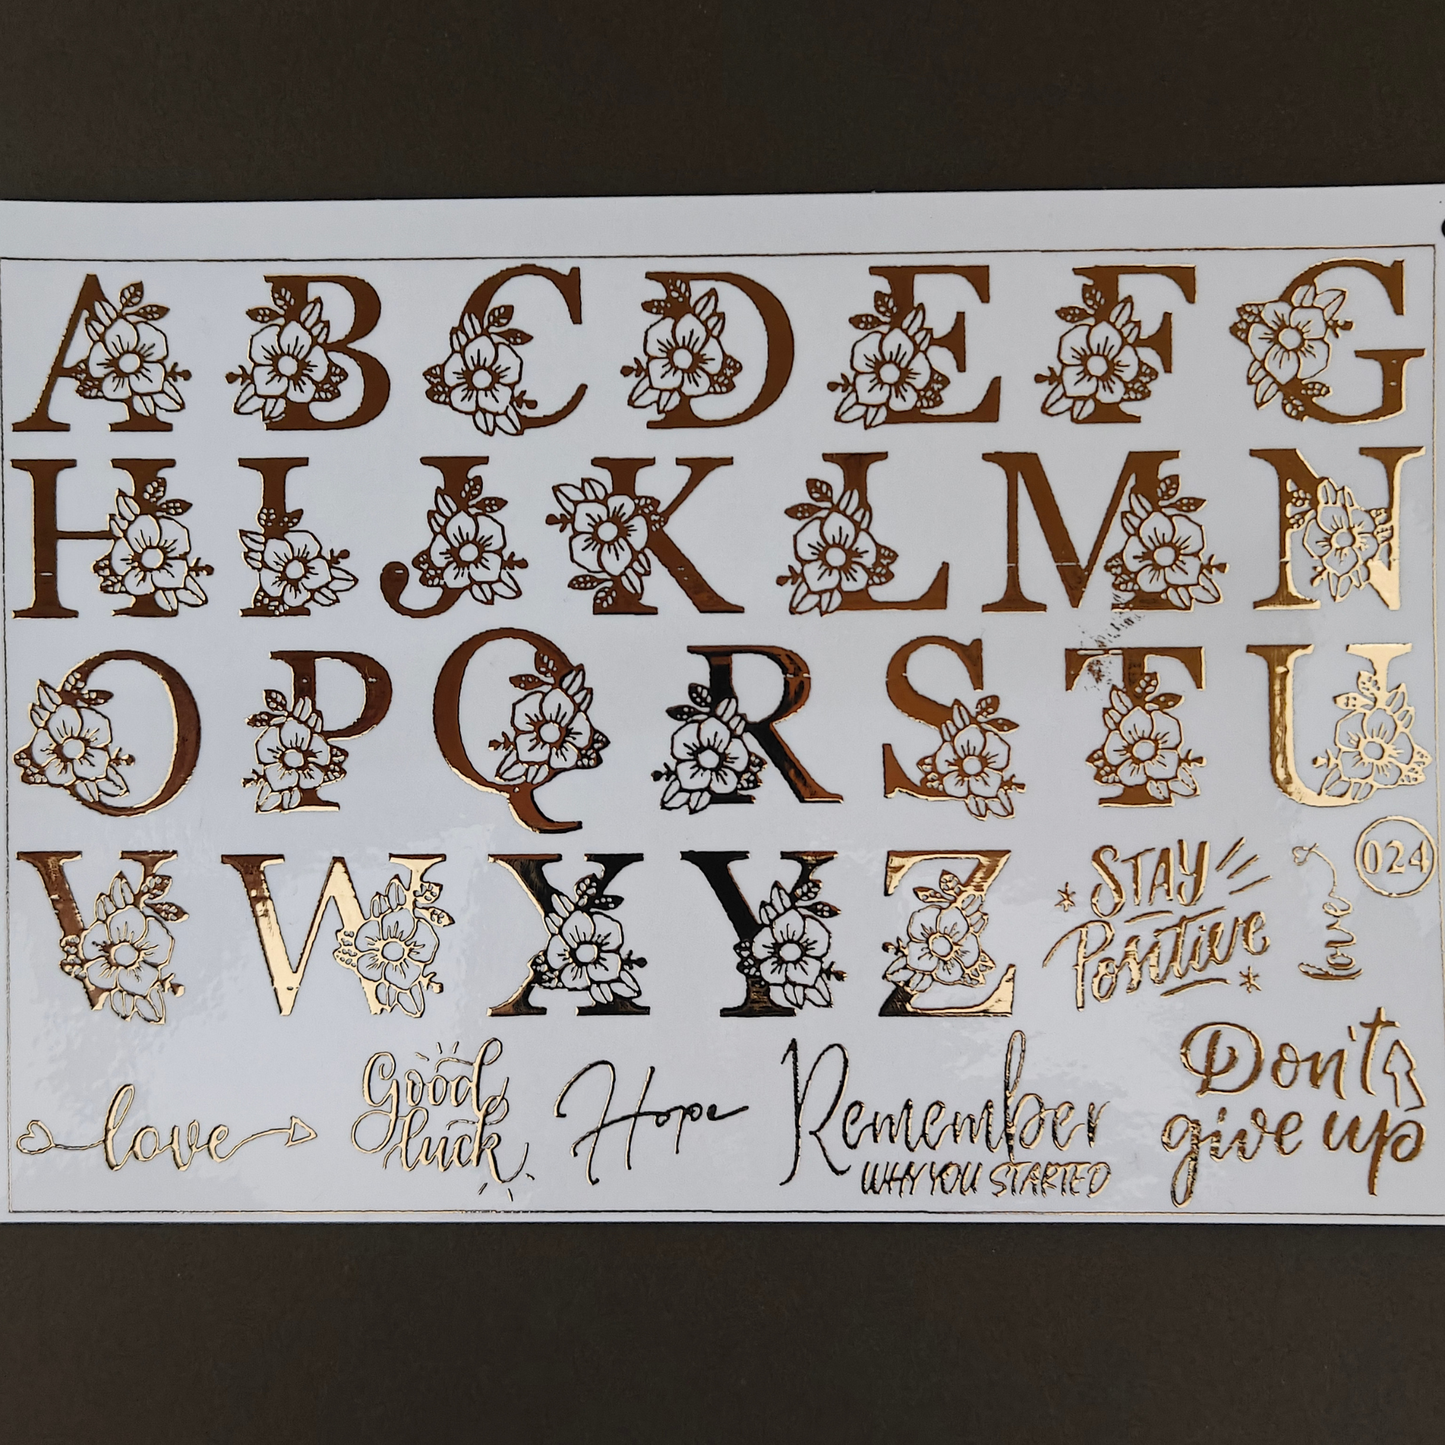 A B C D E F G
H I J K L M N
O P Q R S T U
V W X Y Z
STAY
Positive
love
024
love
Good
luck
Hope
Remember
WHY YOU STARTED
Don't
give up